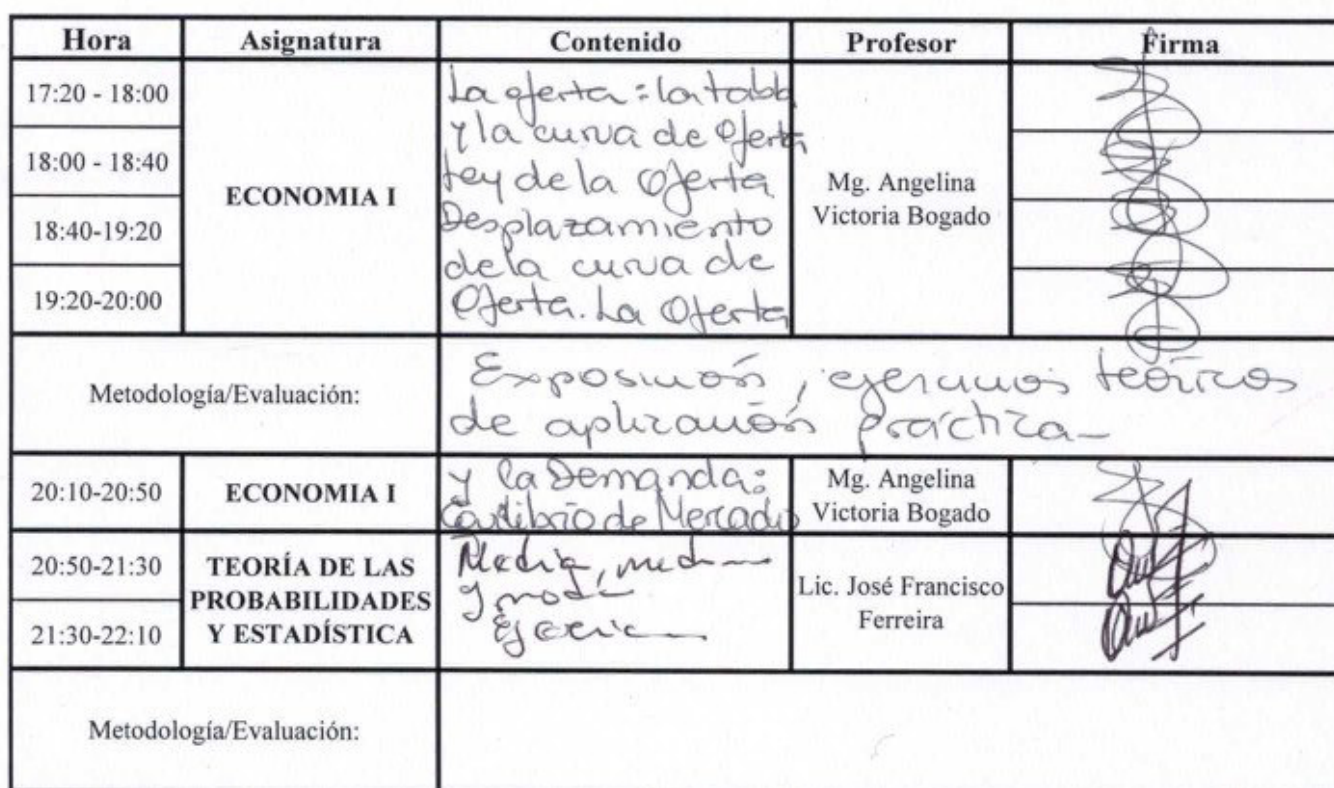 Hora Asignatura Contenido Profesor Firma
17:20 - 18:00
18:00 - 18:40
18:40-19:20
19:20-20:00
ECONOMIA I
La oferta: la tabla
y la curva de Oferta
Ley de la Oferta
Desplazamiento
de la curva de
Oferta. La Oferta
Mg. Angelina
Victoria Bogado
Metodología/Evaluación:
Exposición, ejercicios teóricos
de aplicación práctica
20:10-20:50
ECONOMIA I
y la Demanda:
Equilibrio de Mercado
Mg. Angelina
Victoria Bogado
20:50-21:30
21:30-22:10
TEORÍA DE LAS
PROBABILIDADES
Y ESTADÍSTICA
Media,
y moda
Lic. José Francisco
Ferreira
Metodología/Evaluación: